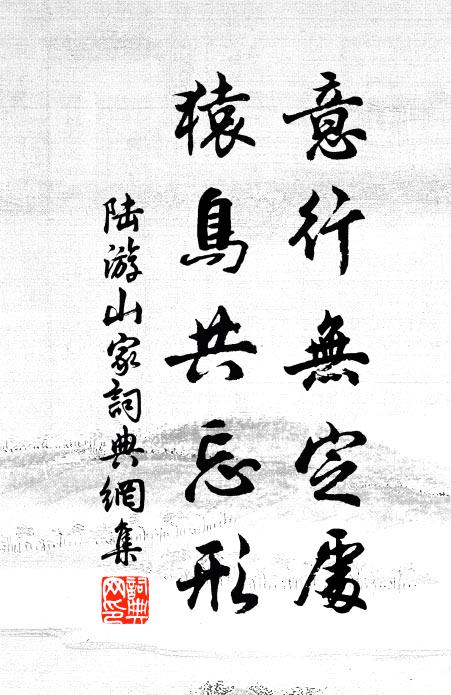 意行無定處
猿鳥共忘形
陆游山家詞典網集
詞典網印